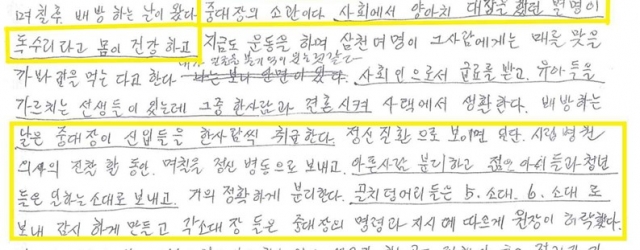 며칠후. 배방 하는 날이 왔다. 중대장의 소관이다. 사회에서 양아치 대장을 했던 별명이
독수리라고 몸이 건강 하고 지금도 운동을 하며 삼천여명이 그사람에게는 매를 맞을
까봐 겁을 먹는 다고 한다. 사회인으로서 급료를 받고. 유아들을
가르치는 선생들이 있는데 그중 한사람과 결혼시켜 사택에서 생활한다. 배방하는
날은 중대장이 신입들을 한사람씩 취급한다. 정신질환으로 보이면 일단. 시립병원
의사의 진찰 할 동안. 며칠을 정신 병동으로 보내고. 아픈사람 분리하고 젊은 아이들과 청년
들은 일하는소대로 보내고. 거의 정확하게 분리한다. 골치덩어리들은 5.소대. 6.소대 로
보내 감시 하게 만들고 각소대장 들은 중대장의 명령과 지시에 따르게 원장이 허락했다.